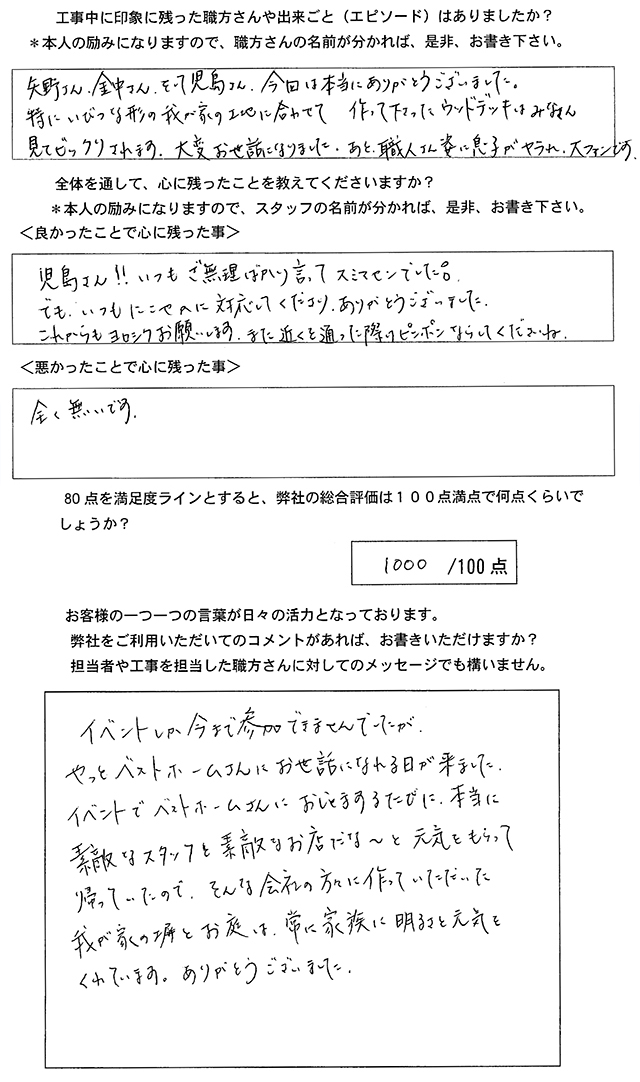 工事中に印象に残った職方さんや出来ごと（エピソード）はありましたか？
＊本人の励みになりますので、職方さんの名前が分かれば、是非、お書き下さい。
矢野さん、金中さん、そして児島さん、今回は本当にありがとうございました。
特にいびつな形の我が家の土地に合わせて 作って下さったウッドデッキはみなさん
見てビックリされます。大変お世話になりました。あと、職人さん姿に息子がヤラれ、大ファンです。
全体を通して、心に残ったことを教えてくださいますか？
＊本人の励みになりますので、スタッフの名前が分かれば、是非、お書き下さい。
＜良かったことで心に残った事＞
児島さん!! いつもご無理ばかり言ってスミマセンでした。
でも、いつもにこやかに対応してくださり、ありがとうございました。
これからもヨロシクお願いします。また近くを通った際はピンポンならしてくださいね。
＜悪かったことで心に残った事＞
全く無いです。
80点を満足度ラインとすると、弊社の総合評価は１００点満点で何点くらいで
しょうか？
1000 /100点
お客様の一つ一つの言葉が日々の活力となっております。
弊社をご利用いただいてのコメントがあれば、お書きいただけますか？
担当者や工事を担当した職方さんに対してのメッセージでも構いません。
イベントしか今まで参加できませんでしたが、
やっとベストホームさんにお世話になれる日が来ました。
イベントでベストホームさんにおじゃまするたびに、本当に
素敵なスタッフと素敵なお店だな〜と元気をもらって
帰っていたので、そんな会社の方々に作っていただいた
我が家の塀とお庭は、常に家族に明るさと元気を
くれています。ありがとうございました。